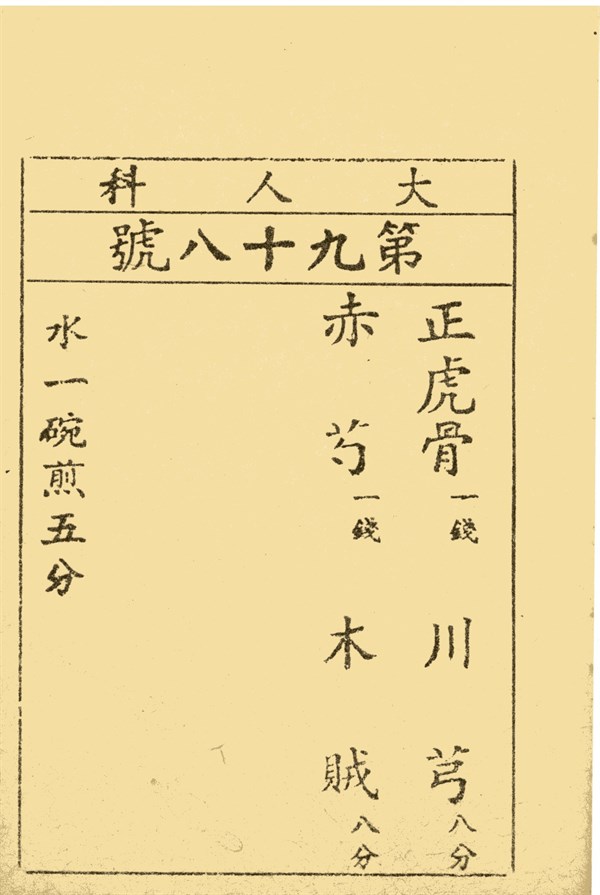 大人科
第九十八號
正虎骨一錢 川芎八分
赤芍一錢 木賊八分
水一碗煎五分